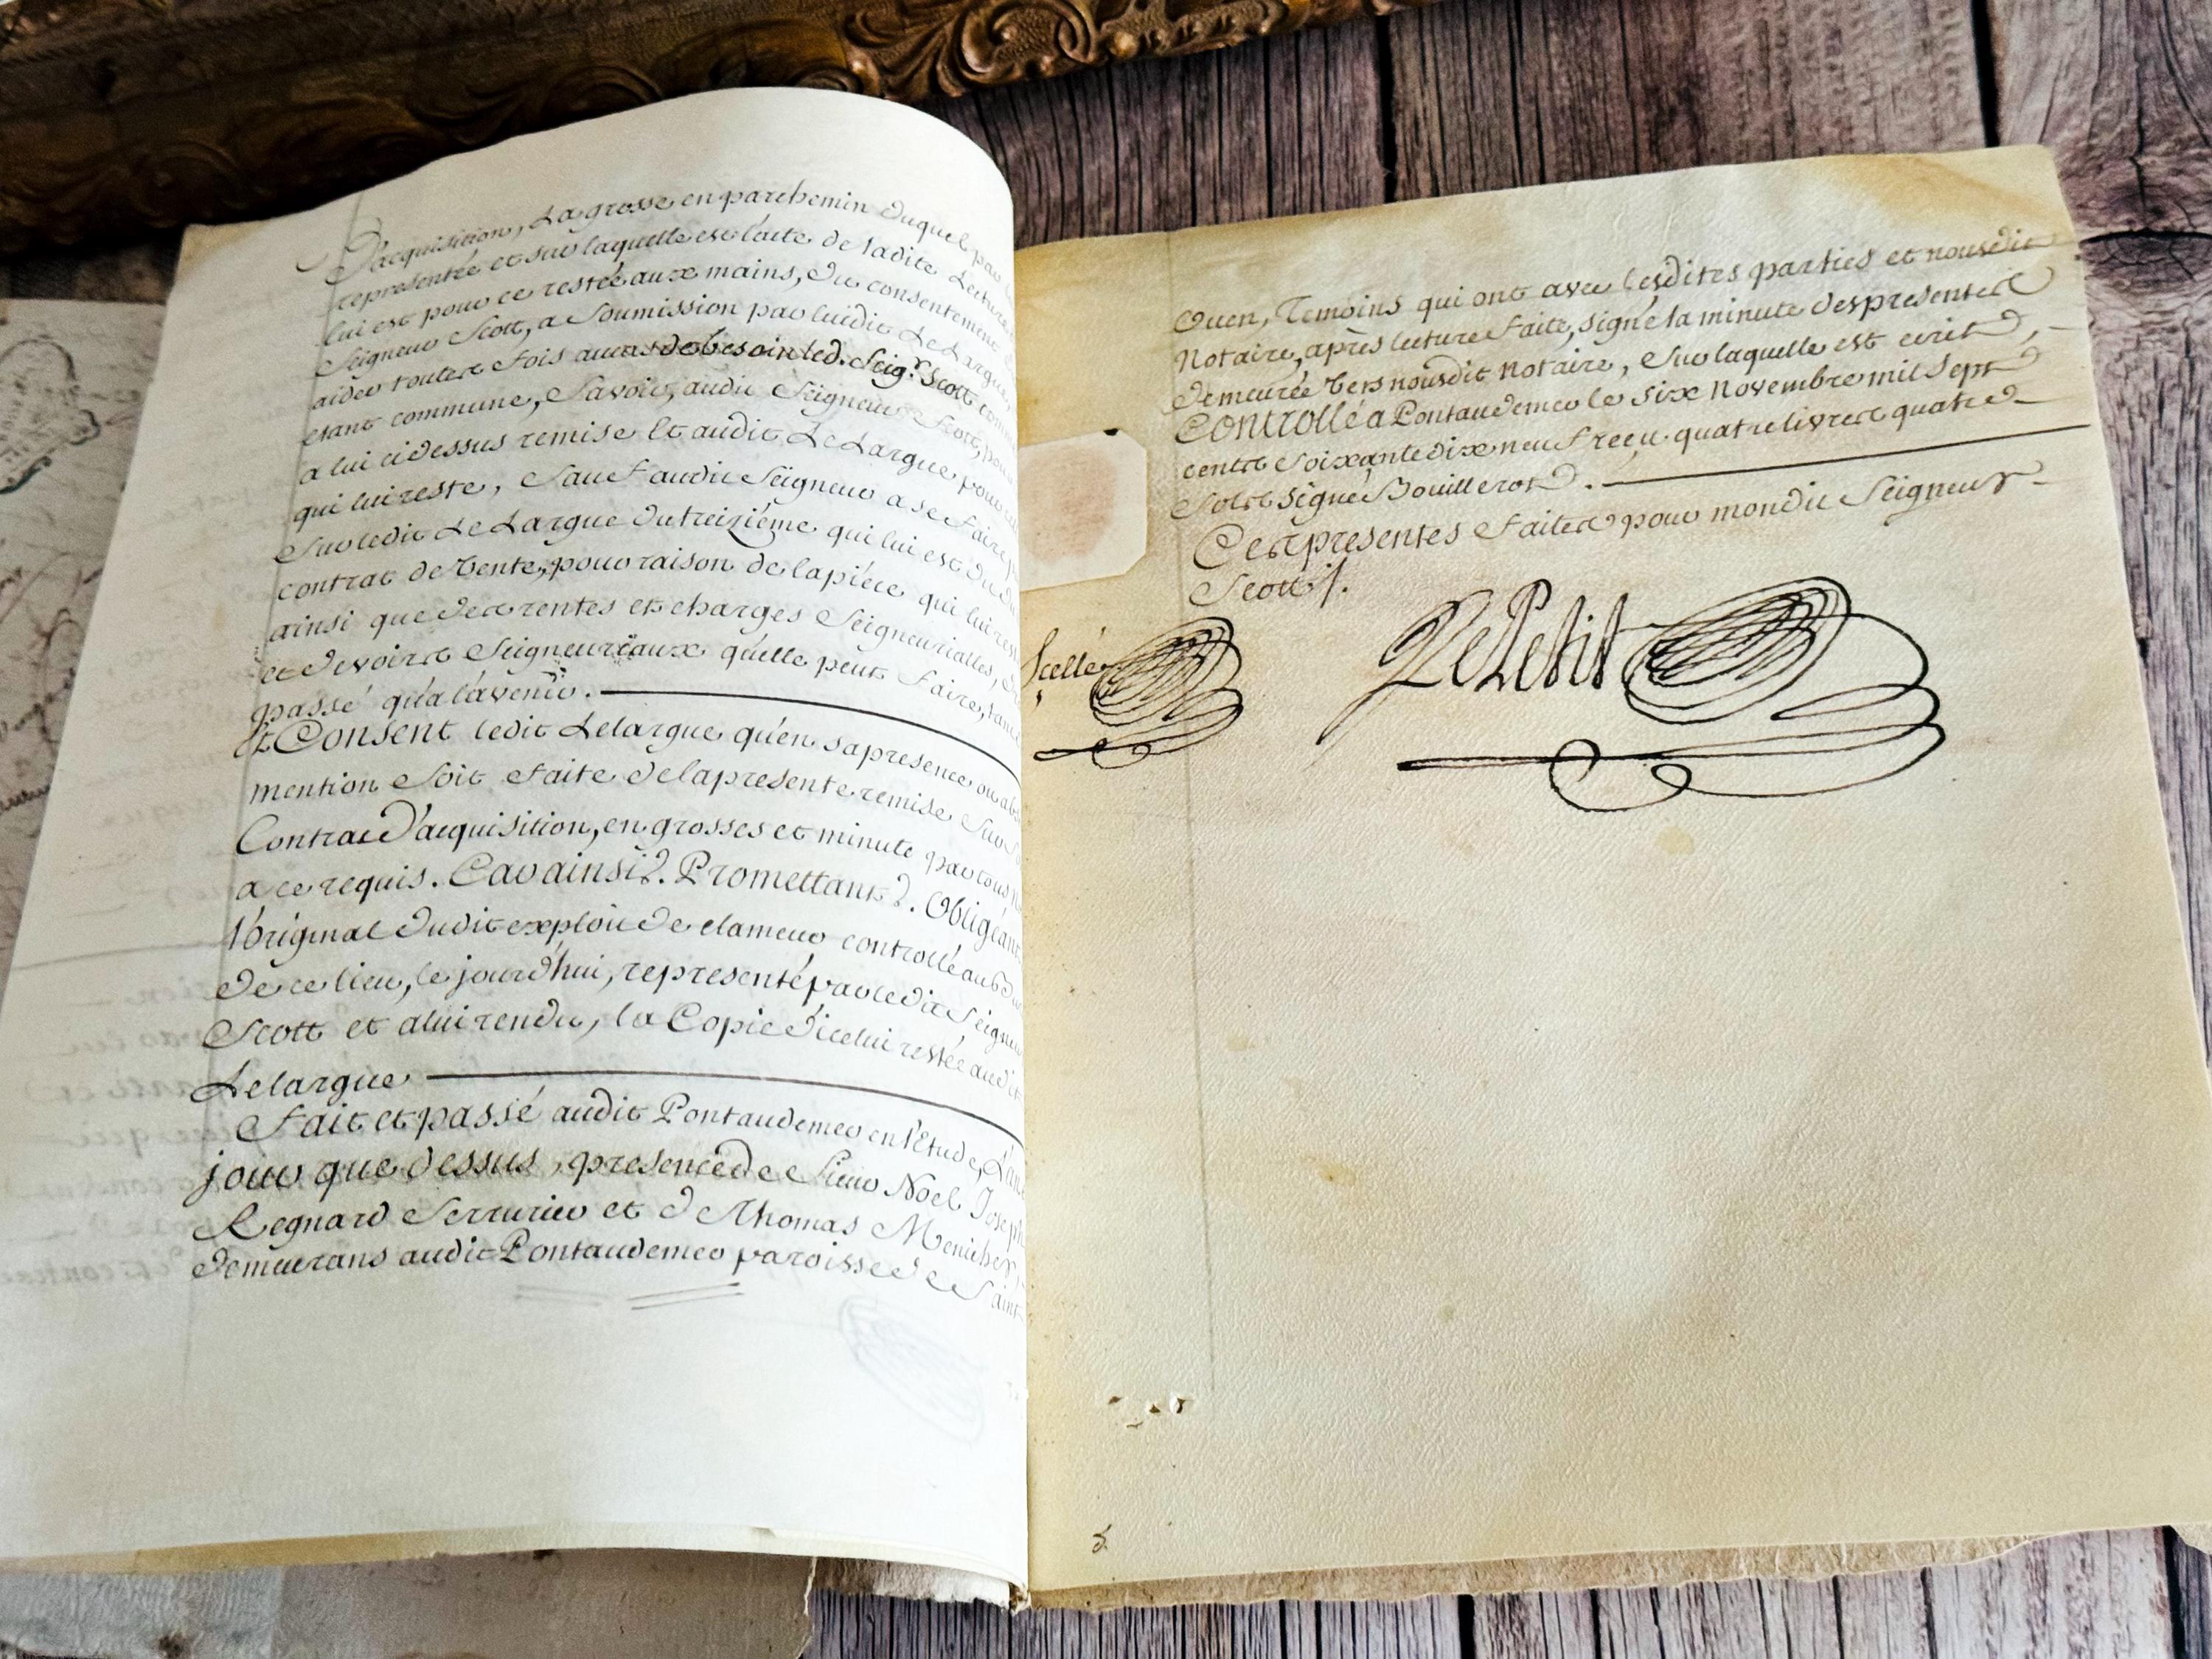 D'acquisition, La grosse en parchemin duquel par
representée et sur laquelle est faite de ladite Lecture
lui est pour ce restée aux mains, du consentement
Seigneur Scott, a Soumission par luidit Le Largue
aider toutes fois au cas de besoin led. Seigr. Scott comme
etant commune, Savoir, audit Seigneur Scott, pour
a lui cidessus remise Et audit Le Largue pour
qui lui reste, Sauf audit Seigneur a se faire
Sur ledit Le Largue du treizième qui lui est du du
contrat de Vente, pour raison de la piéce qui lui reste
ainsi que des rentes et charges Seigneurialles,
et devoirs Seigneuriaux qu'elle peut faire, tant
passé qu'a l'avenir.
Et Consent ledit Lelargue qu'en sa presence ou abs
mention Soit faite de la presente remise Sur
Contrat D'acquisition, en grosses et minute par tous
a ce requis. Car ainsi &. Promettant &. Obligéant
l'original dudit exploit de clameur controllé au b du
de ce lieu, le jourd'hui, representé par ledit Seigneur
Scott et a lui rendu, la Copie d'icelui restée audit
Lelargue
Fait et passé audit Pontaudemer en l'Etude, L'an
jour que dessus, presence de Sieur Noel Joseph
Regnard Serrurier et de Thomas Menicher,
demeurans audit Pontaudemer paroisse de Saint
Ouen, Temoins qui ont avec lesdites parties et nousdit
Notaire, après lecture faite, signé la minute des presentes
demeurée Vers nousdit Notaire, Sur laquelle est ecrit,
Controllé a Pontaudemer le six Novembre mil Sept
cents Soixante dix neuf reçu quatre livres quatre
Sols Signé Bouillerot.
Ces presentes faites pour mondit Seigneur
Scott /.
Scellé
LePetit